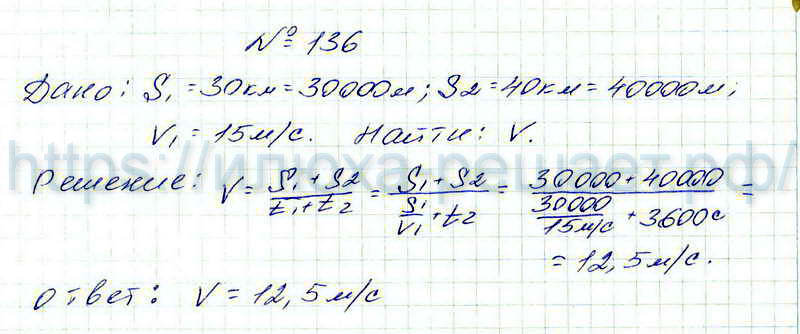 № 136
Дано: S₁ = 30км = 30000м; S2 = 40км = 40000м;
V₁ = 15м/с. Найти: V.
https://илюха-решает.рф/
Решение: V = (S₁ + S2)/(t₁ + t2) = (S₁ + S2)/(S₁/V₁ + t2) = (30000 + 40000)/(30000/15м/с + 3600с) =
= 12,5м/с.
Ответ: V = 12,5м/с